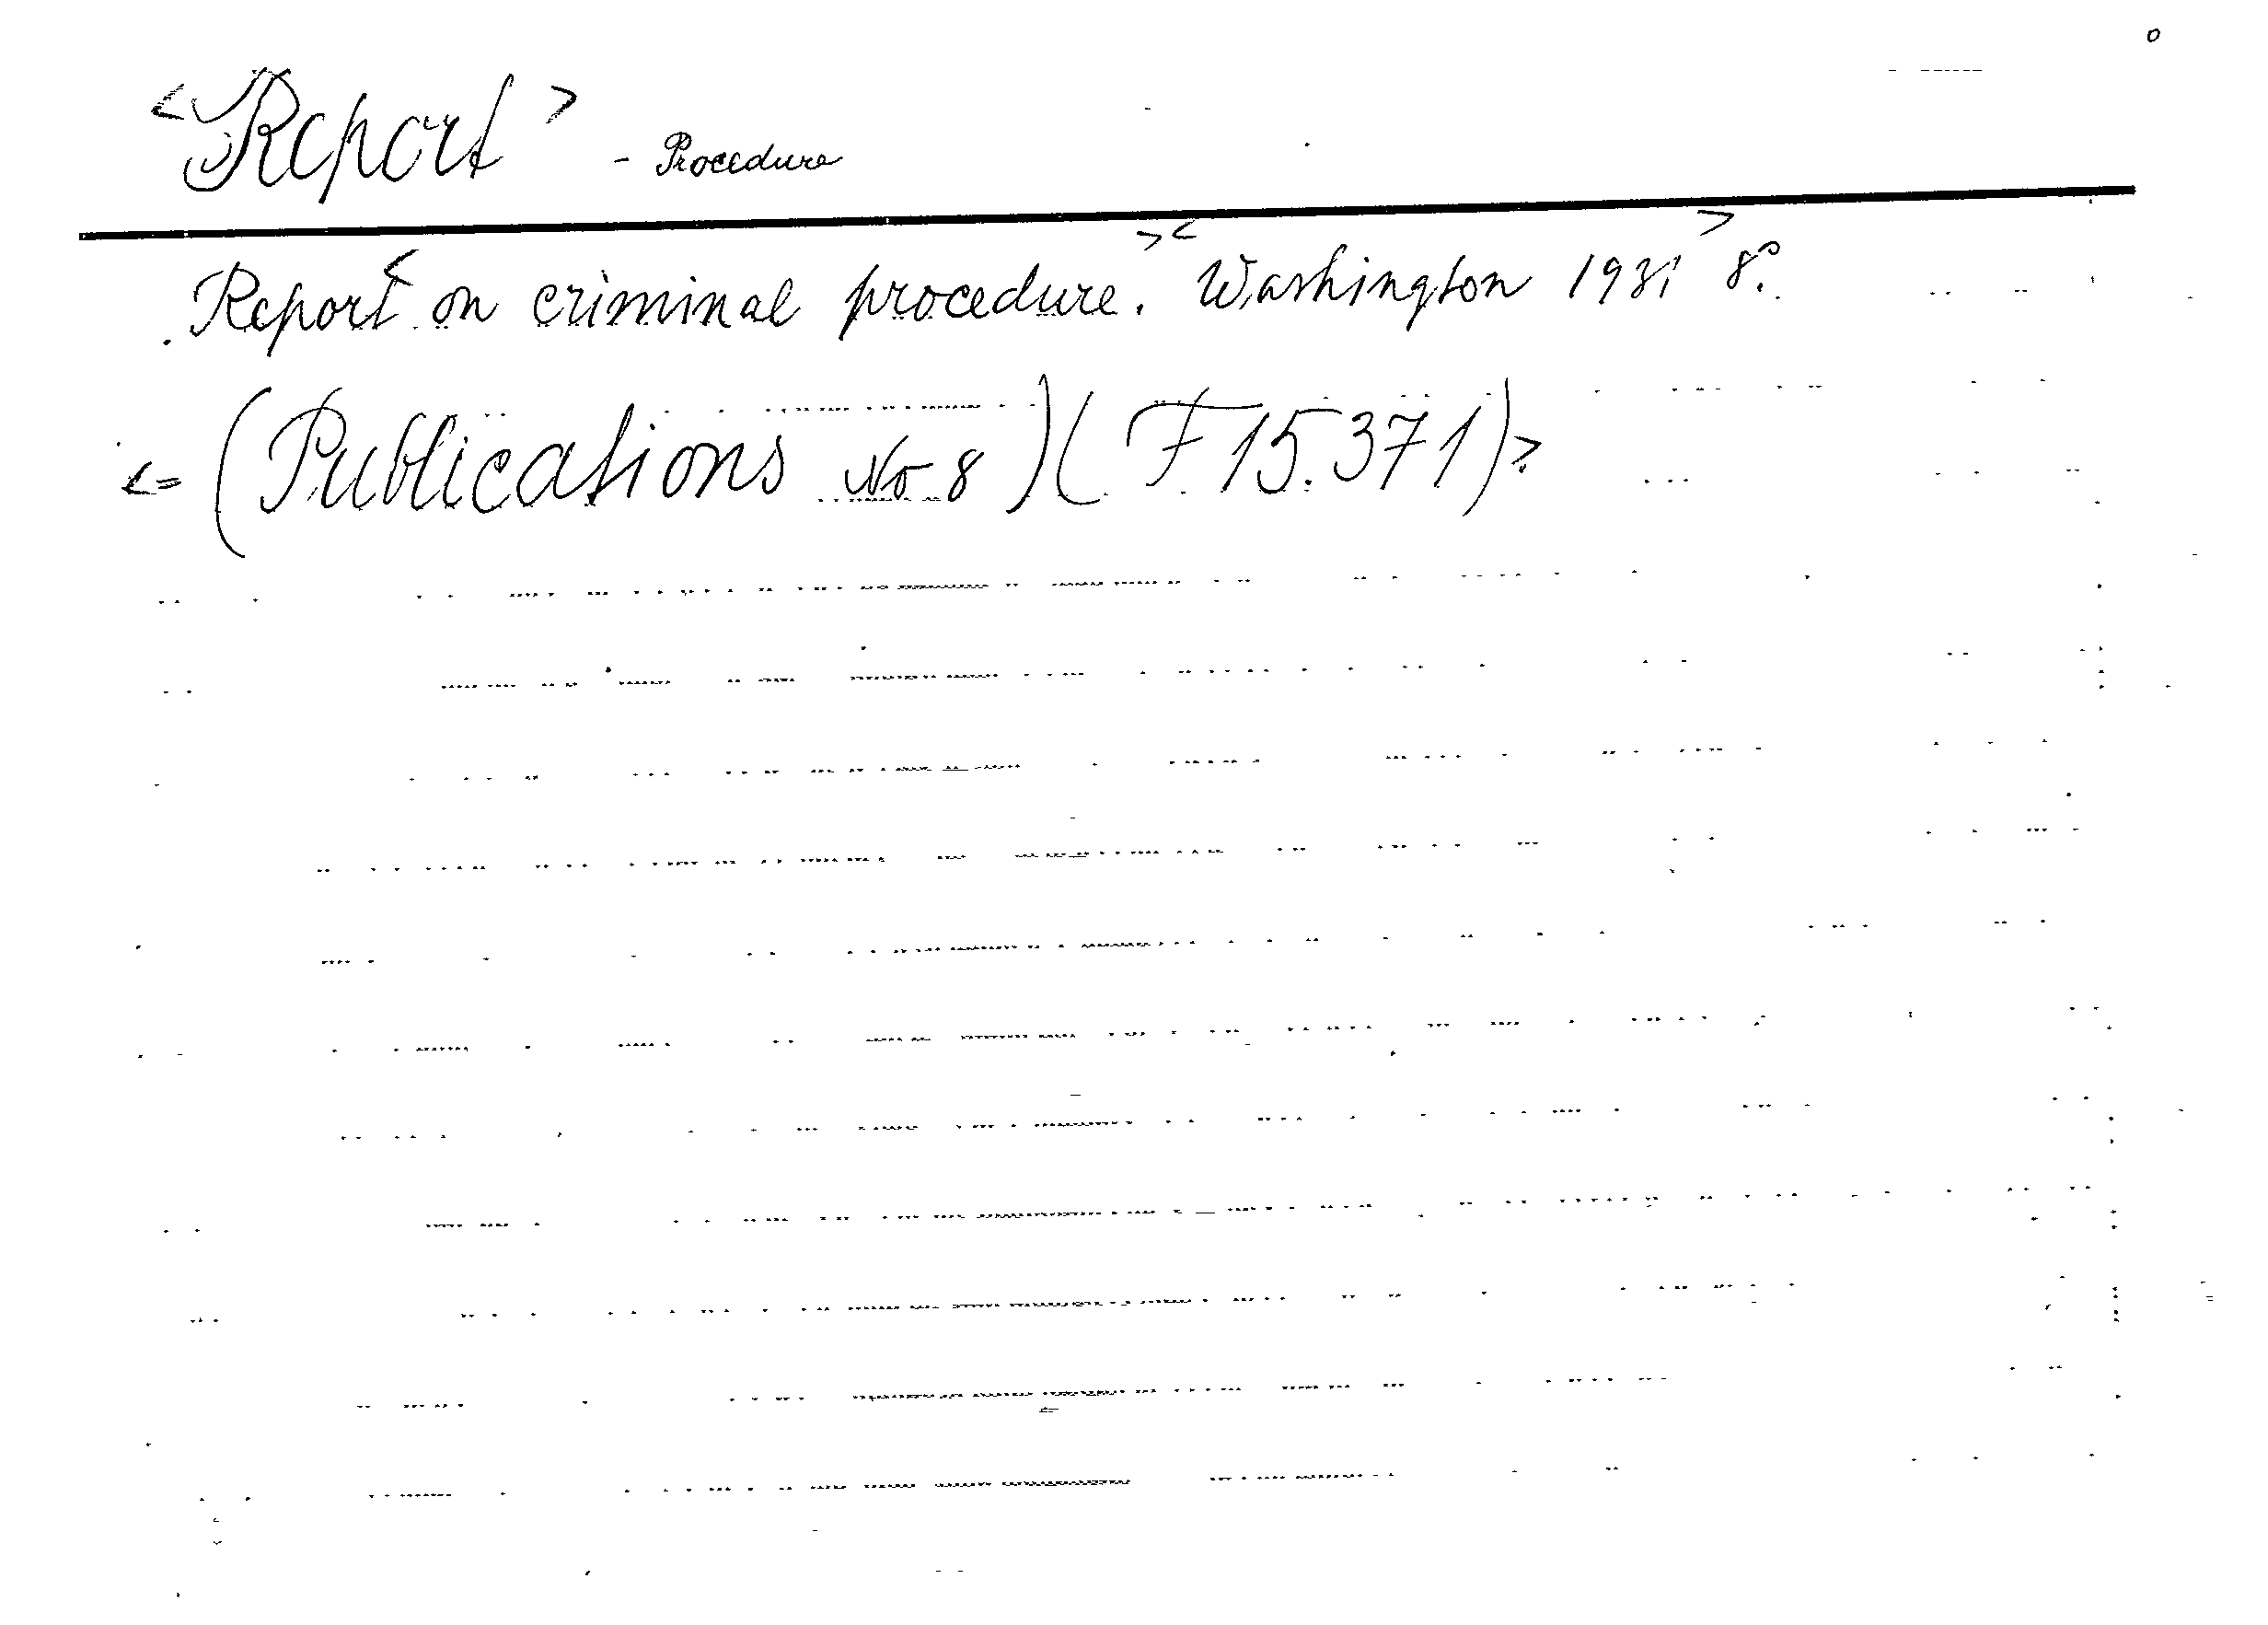 <Report> - Procedure
Report< on criminal procedure. >< Washington 1931> 8°.
<= (Publications No 8) (F 15.371)>